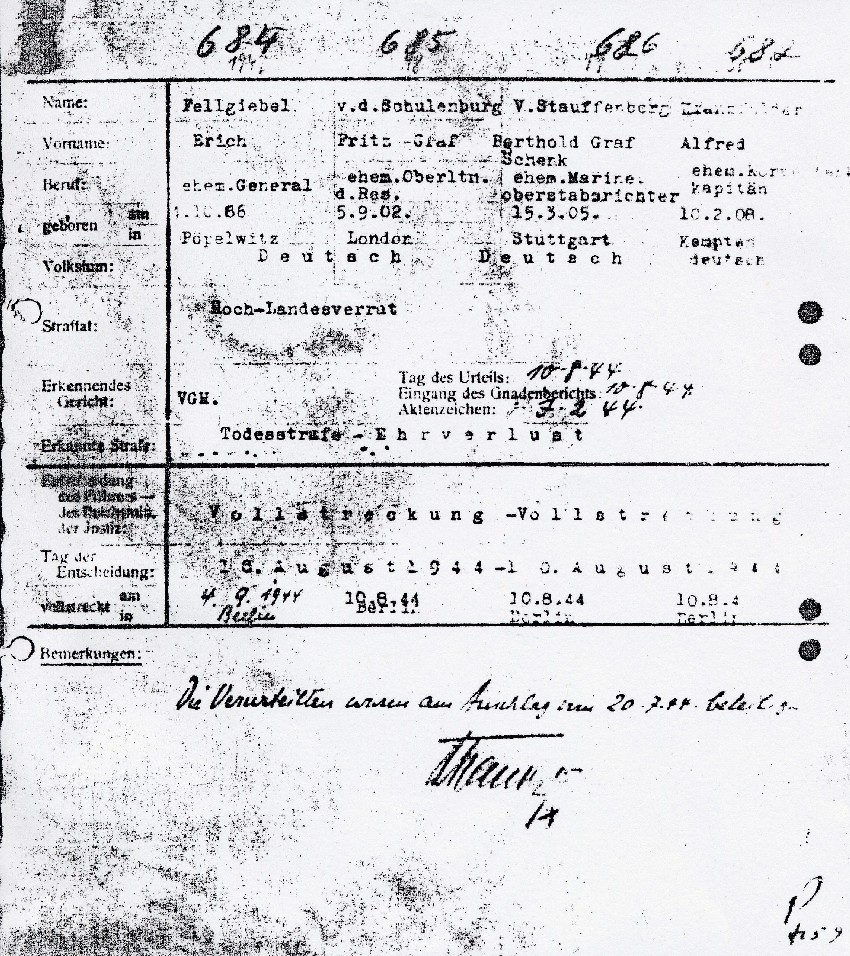 684 685 686
Name: Fellgiebel v.d.Schulenburg V.Stauffenberg
Vorname: Erich Fritz -Graf Berthold Graf Alfred
Schenk
Beruf: ehem.General ehem.Oberltn. ehem.Marine.
d.Res. oberstabsrichter kapitän
geboren am 1.10.86 5.9.02. 15.3.05. 10.2.08.
in Pöpelwitz London Stuttgart Kempten
Volkstum: Deutsch Deutsch deutsch
Straftat: Hoch-Landesverrat
Erkennendes Gericht: VGH.
Tag des Urteils: 10.8.44
Eingang des Gnadenberichts: 10.8.44
Aktenzeichen: 44.
Erkannte Strafe: Todesstrafe - Ehrverlust
Entscheidung
des Führers —
der Justiz: Vollstreckung -Vollstreckung
Tag der
Entscheidung: August 1944-1 0. August
vollstreckt am 4. 9. 1944 10.8.44 10.8.44 10.8.4
in Berlin Berlin Berlin Berlin
Bemerkungen:
Die Verurteilten waren am Anschlag am 20.7.44